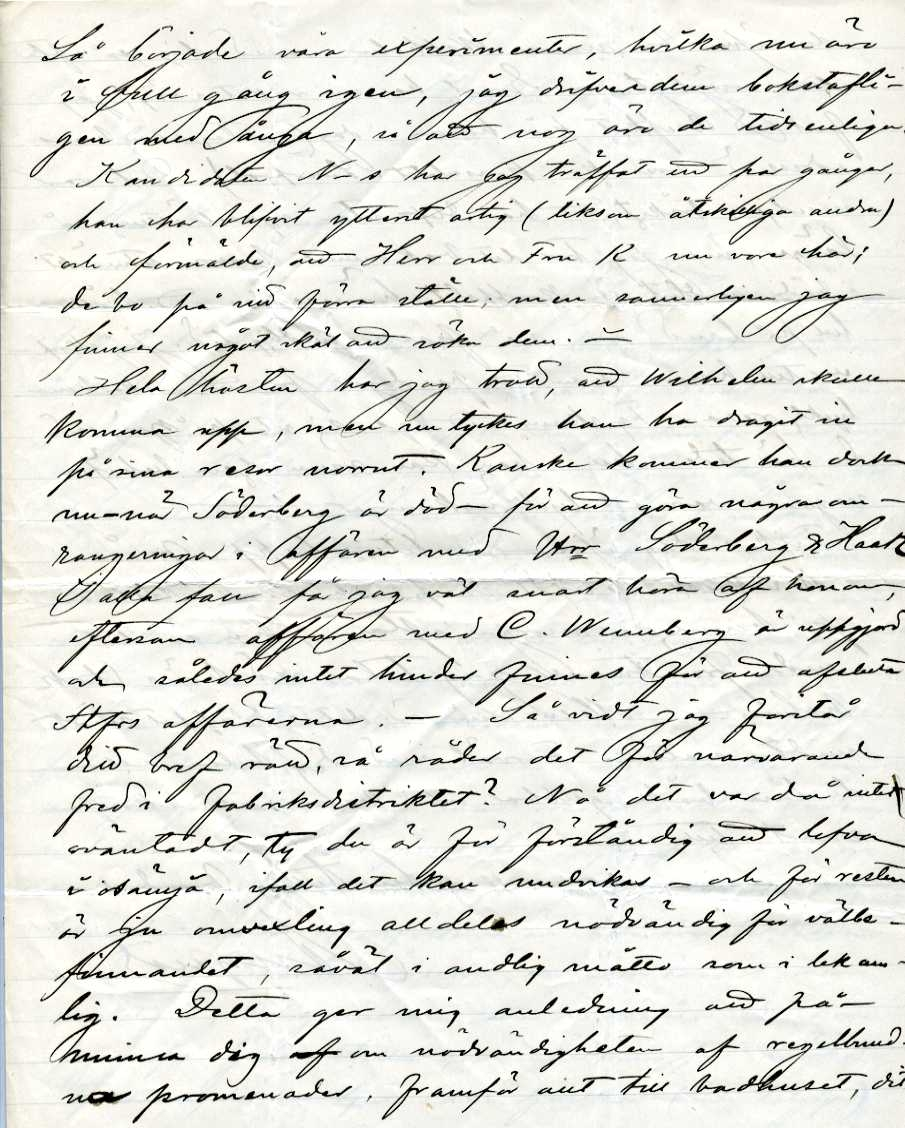 Så började våra experimenter, hvilka nu äro
i full gång igen, jag drifver dem bokstafli-
gen med ånga, så att nog äro de tidsenliga.
Kandidaten N-s har jag träffat ett par gånger,
han har blifvit ytterst artig (liksom åtskilliga andra)
och förmälde, att Herr och Fru K nu vore här;
de bo på sitt förra ställe, men sannerligen jag
finner något skäl att söka dem. –
Hela hösten har jag trott, att Wilhelm skulle
komma upp, men nu tyckes han ha dragit in
på sina resor norrut. Kanske kommer han dock
nu – när Söderberg är död – för att göra några om-
rangeringar i affären med Hrr Söderberg & Haak
I alla fall få jag väl snart höra af honom,
eftersom affären med C. Wennberg är uppgjord
och således intet hinder finnes för att afsluta
Stfrs affärerna. — Så vidt jag förstår
ditt bref rätt, så råder det för närvarande
fred i fabriksdistriktet? Nå det var då intet
oväntadt, ty du är för förståndig att lefva
i osämja, ifall det kan undvikas – och för resten
är ju omvexling alldeles nödvändig för välbe-
finnandet, såväl i andlig måtto som i lekam-
lig. Detta ger mig anledning att på-
minna dig om nödvändigheten af regelbund-
na promenader, framför allt till badhuset, dit